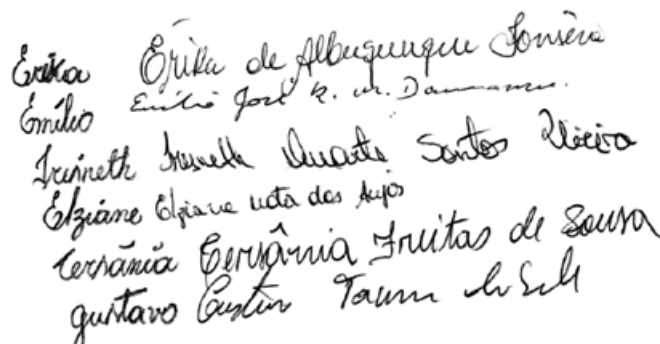 Erika Érika de Albuquerque Fonsêca
Emílio Emílio José R. M. D
Irinneth Irinneth Duarte Santos Vieira
Elziane Elziane Mota dos Anjos
Cersânia Cersânia Freitas de Sousa
Gustavo Gustavo